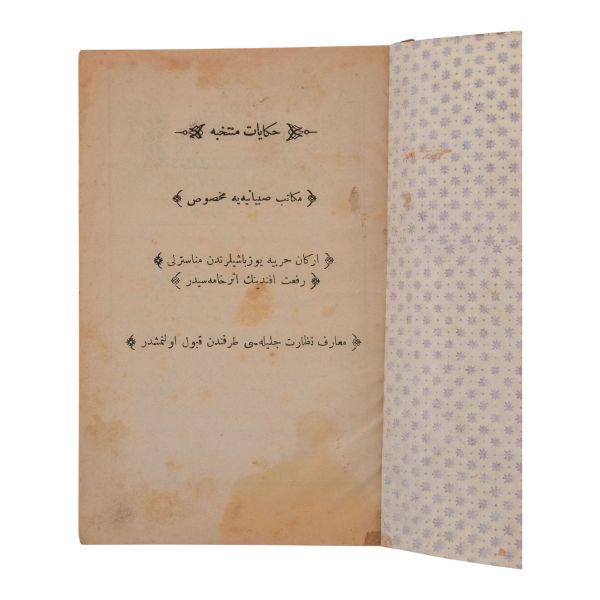 حكايات منتخبه
﴿ مكاتب صبيانيه‌يه مخصوص ﴾
﴿ اركان حربيه يوزباشيلرندن مناسترلى ﴾
﴿ رفعت افندينك اثر خامه‌سيدر ﴾
﴿ معارف نظارت جليله‌سى طرفندن قبول اولنمشدر ﴾